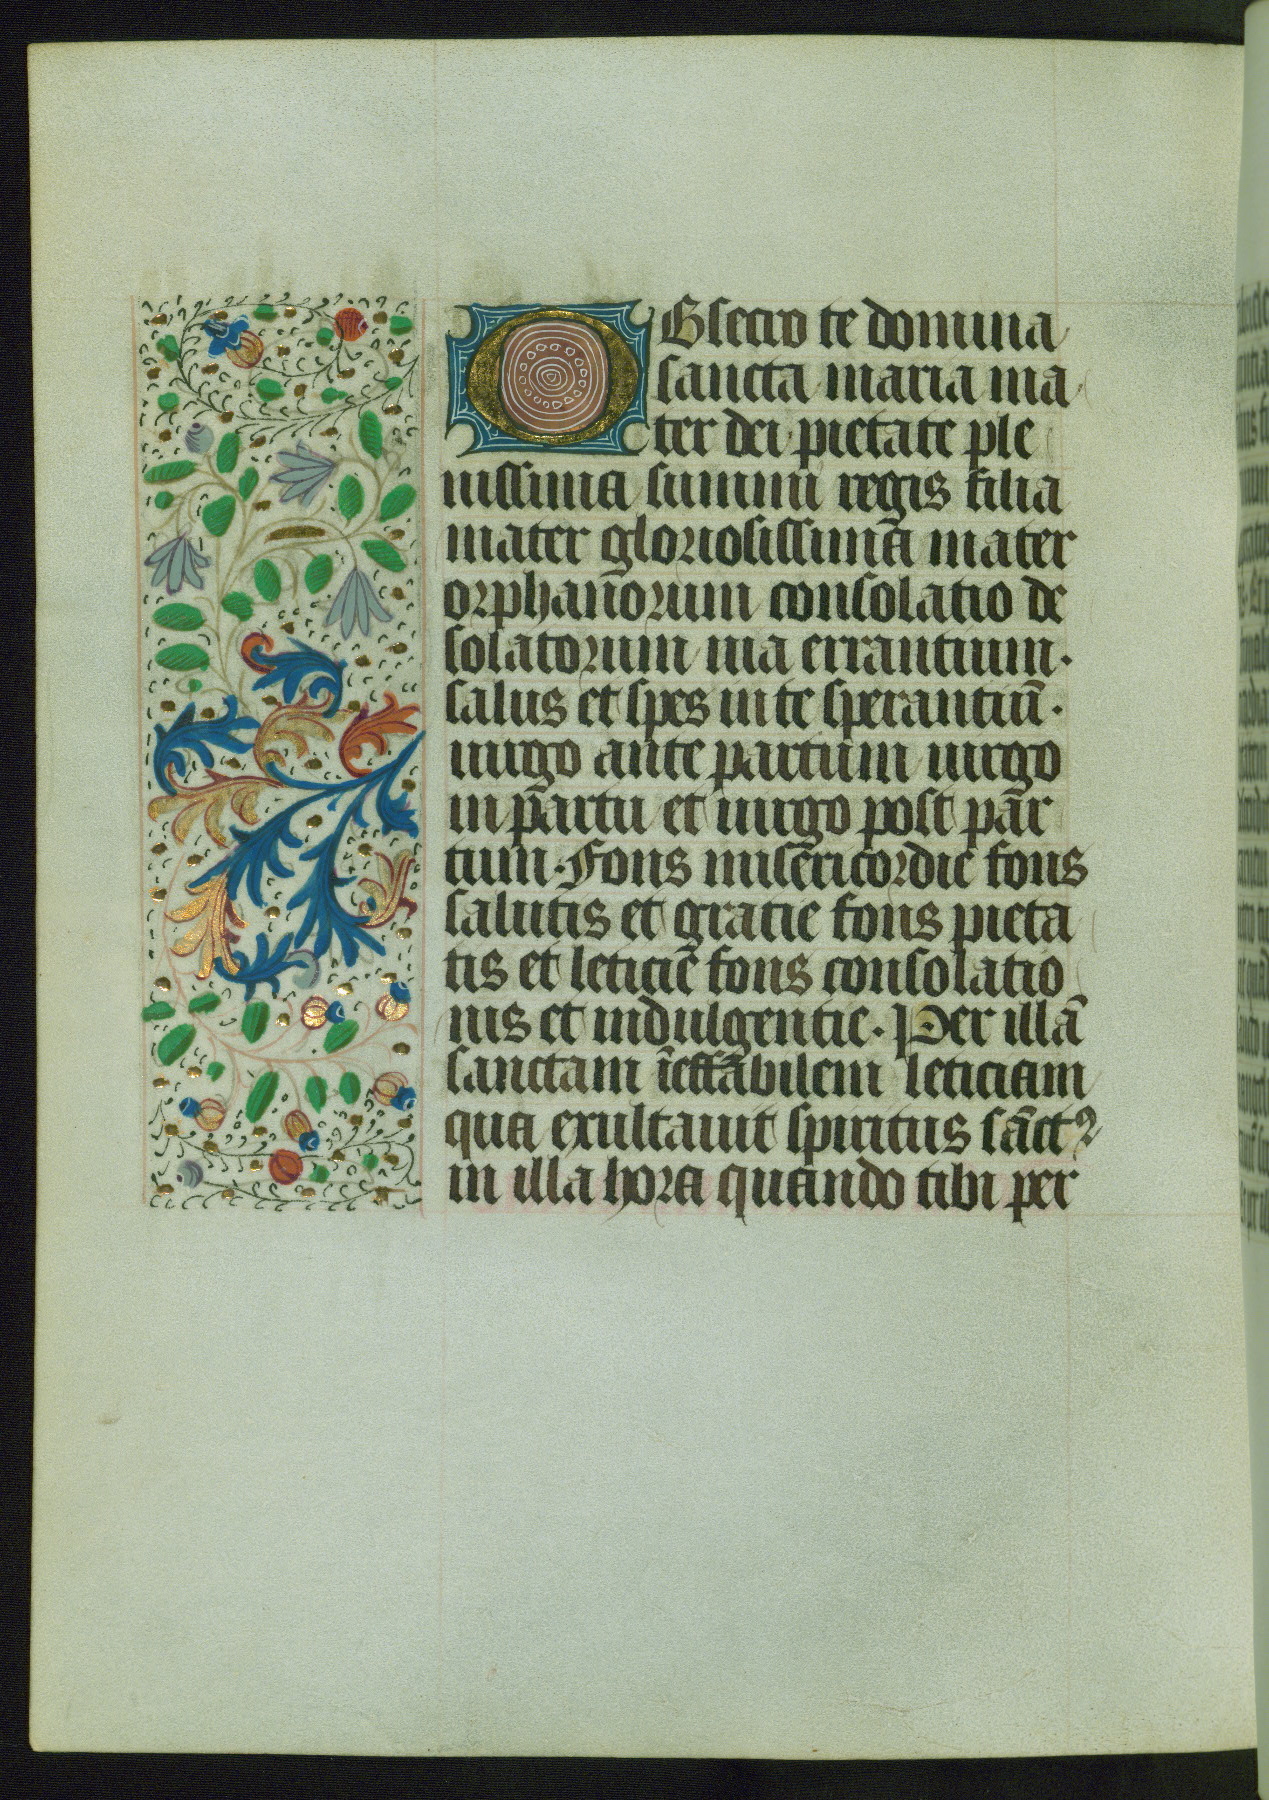 OBsecro te domina
sancta maria ma
ter dei pietate ple
nissima summi regis filia
mater gloriosissima mater
orphanorum consolatio de
solatorum uia errantium·
salus et spes in te sperantiū·
uirgo ante partum uirgo
in partu et uirgo post par
tum· Fons misericordie fons
salutis et gratie fons pieta
tis et leticie fons consolatio
nis et indulgentie· Per illā
sanctam ineffabilem leticiam
qua exultauit spiritus sctꝰ
in illa hora quando tibi per